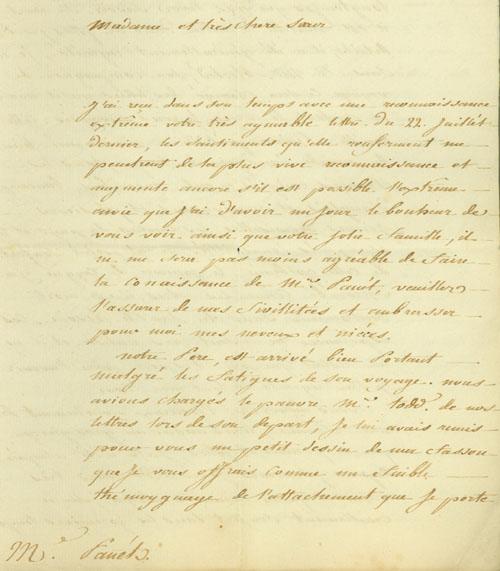 Madame et très chere sœur
j'ai reçu dans son temps avec une reconnaissance
extrême votre très aymable lettre du 22. Juillét
dernier, les sentiments qu'elle renferment me
penetrent de la plus vive reconnaissance et
augmente ancore s'il est posible l'extrême
envie que j'ai d'avoir un jour le bonheur de
vous voir ainsi que votre jolie famille, il
ne me sera pas moins agréable de faire
la conaissance de Mr. Panét, veuillez
l'assurer de mes Sivillitées et embrasser
pour moi mes neveux et niéces.
notre Pere, est arrivé bien Portant
malgré les fatigues de son voyage. nous
avions chargés le pauvre Mr. todd. de nos
lettres lors de son depart, je lui avais remis
pour vous un petit dessin de ma fasson
que je vous offrais comme un faible
thémoygnage de l'attachement que je porte
Me. Panét.